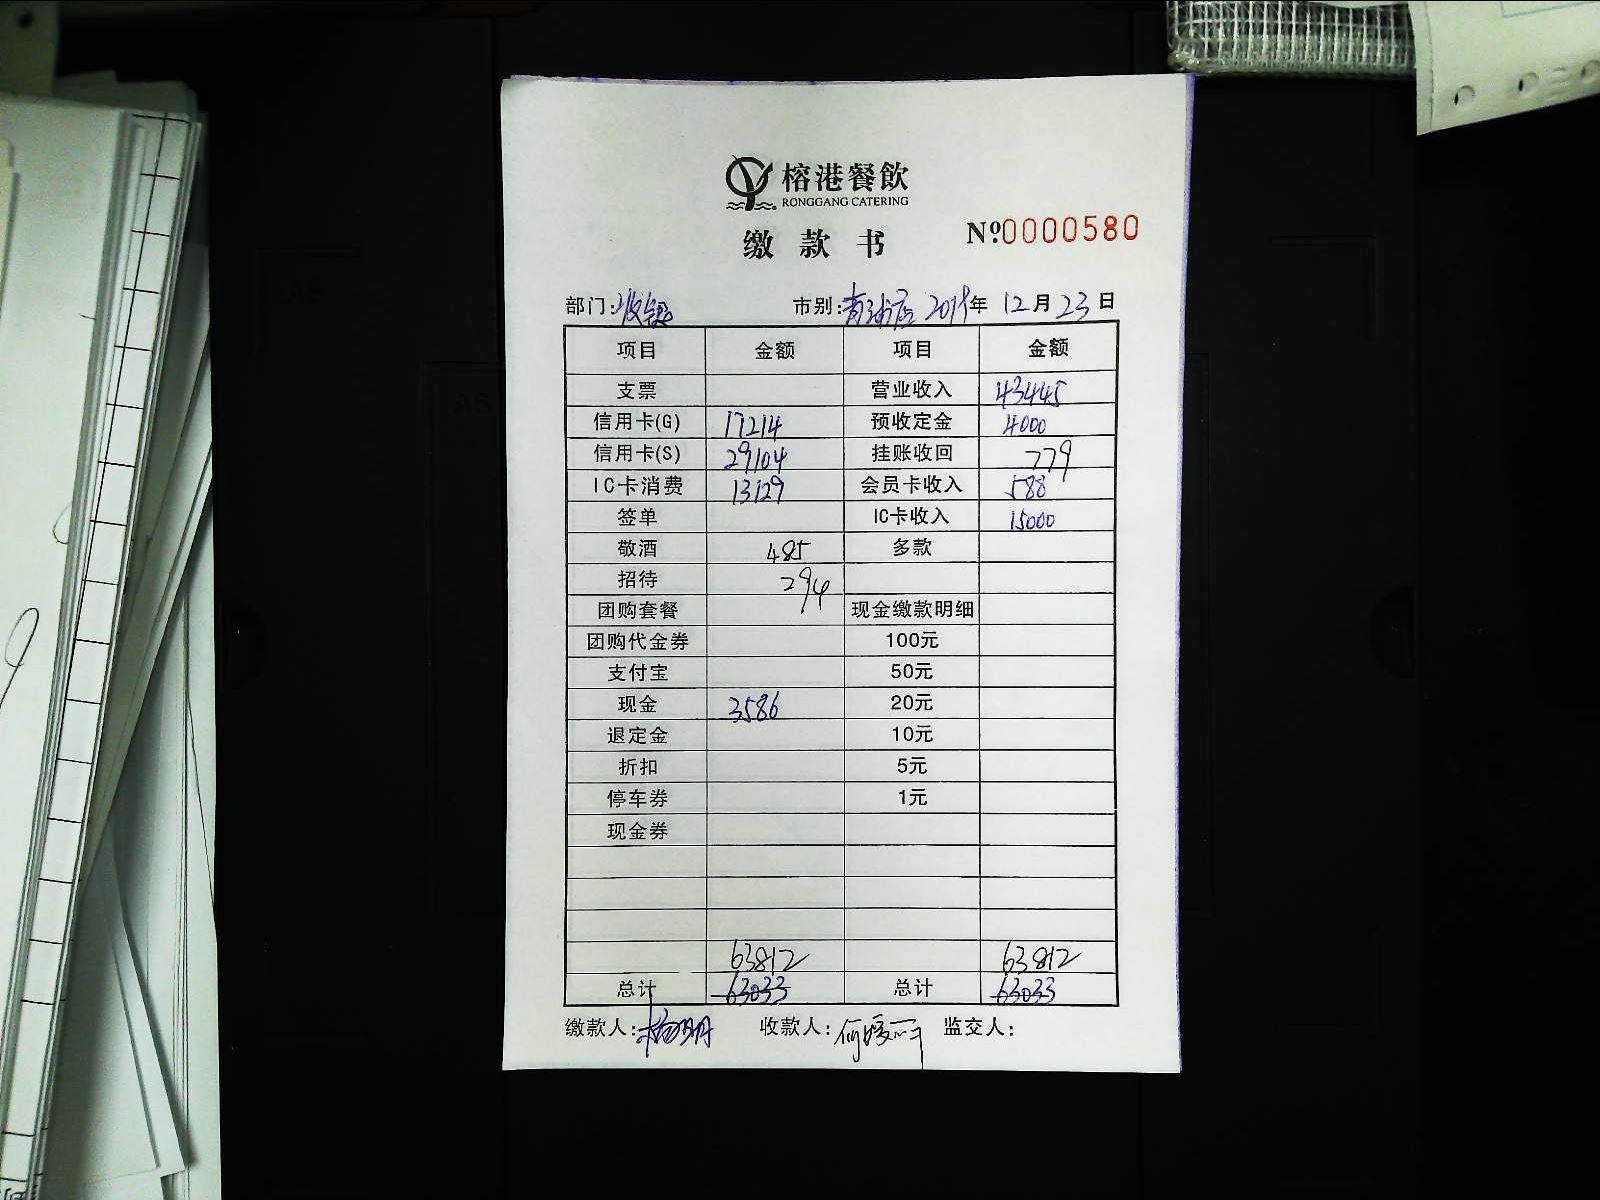 榕港餐飲
RONGGANG CATERING
缴款书 №0000580
部门:收银 市别: 2019年 12月 23日
项目 金额 项目 金额
支票 营业收入 43445
信用卡(G) 17214 预收定金 4000
信用卡(S) 29104 挂账收回 779
IC卡消费 13129 会员卡收入 588
签单 IC卡收入 15000
敬酒 485 多款
招待 294
团购套餐 现金缴款明细
团购代金券 100元
支付宝 50元
现金 3586 20元
退定金 10元
折扣 5元
停车券 1元
现金券
63812 63812
总计 63033 总计 63033
缴款人: 收款人: 监交人: